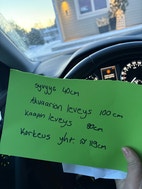 syvyys 40cm
akvaarion leveys 100cm
kaapin leveys 80cm
Korkeus yht. 119cm